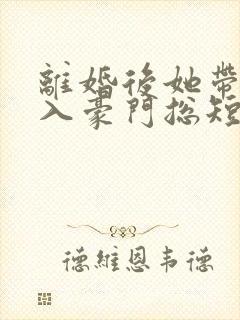 離婚後她帶
入豪門总短
德維恩韦德